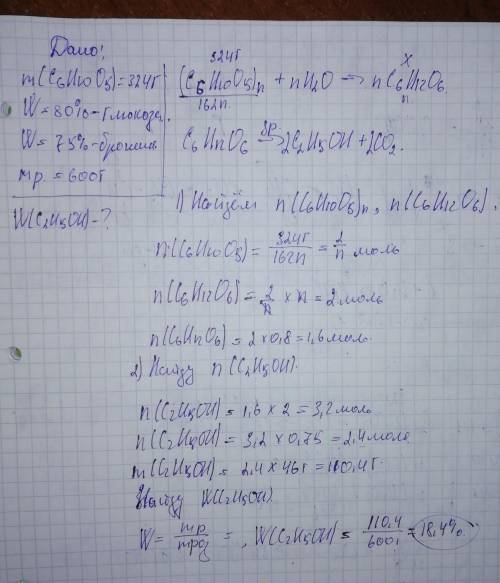 Дано:
m(C6H10O5)=324г
W=80%-глюкоза.
W=75%-брожение
mр.=600г
W(C2H5OH)-?
324г x
(C6H10O5)n + nH2O → nC6H12O6
162n. n
C6H12O6 →др 2C2H5OH+2CO2.
1) Найдём n(C6H10O5)n, n(C6H12O6).
n(C6H10O5)= 324г/162n = 2/n моль
n(C6H12O6)= 2/n × n = 2 моль
n(C6H12O6)= 2×0,8=1,6моль.
2) Найду n(C2H5OH).
n(C2H5OH)=1,6×2=3,2моль
n(C2H5OH)=3,2×0,75=2,4моль
m(C2H5OH)=2,4×46г=110,4г.
Найду W(C2H5OH)
W= mр/mрз =, W(C2H5OH)= 110,4/600г =18,4%.